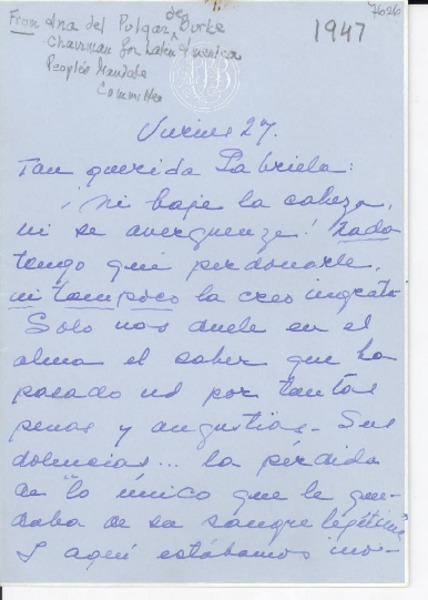 7626
From Ana del Pulgar de Burke
Chairman for Latin America
People's Mandate
Committee
1947
Viernes 27.
Tan querida Gabriela:
¡Ni baje la cabeza,
ni se averguenze! Nada
tengo que perdonarle,
ni tampoco la creo ingrata
Solo nos duele en el
alma el saber que ha
pasado ud por tantas
penas y angustias - Sus
dolencias... la pérdida
de "lo único que le que-
daba de su sangre legítima"
Y aquí estábamos ino-